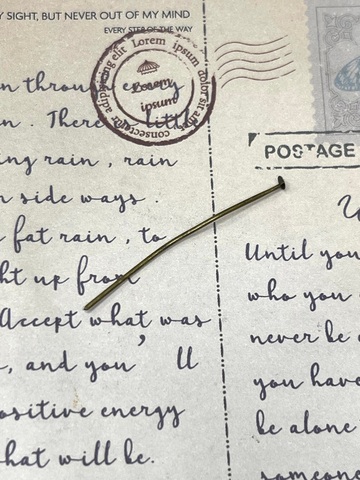 Y SIGHT, BUT NEVER OUT OF MY MIND
EVERY STEP OF THE WAY
adipiscing elit Lorem ipsum dolor sit amet consectetur
Lorem
ipsum
n through every
n. There little
ng rain, rain
n side ways.
fat rain, to
ht up from
Accept what was
, and you'll
ositive energy
hat will be.
POSTAGE
Until you
who you
never be
you have
be alone
someone